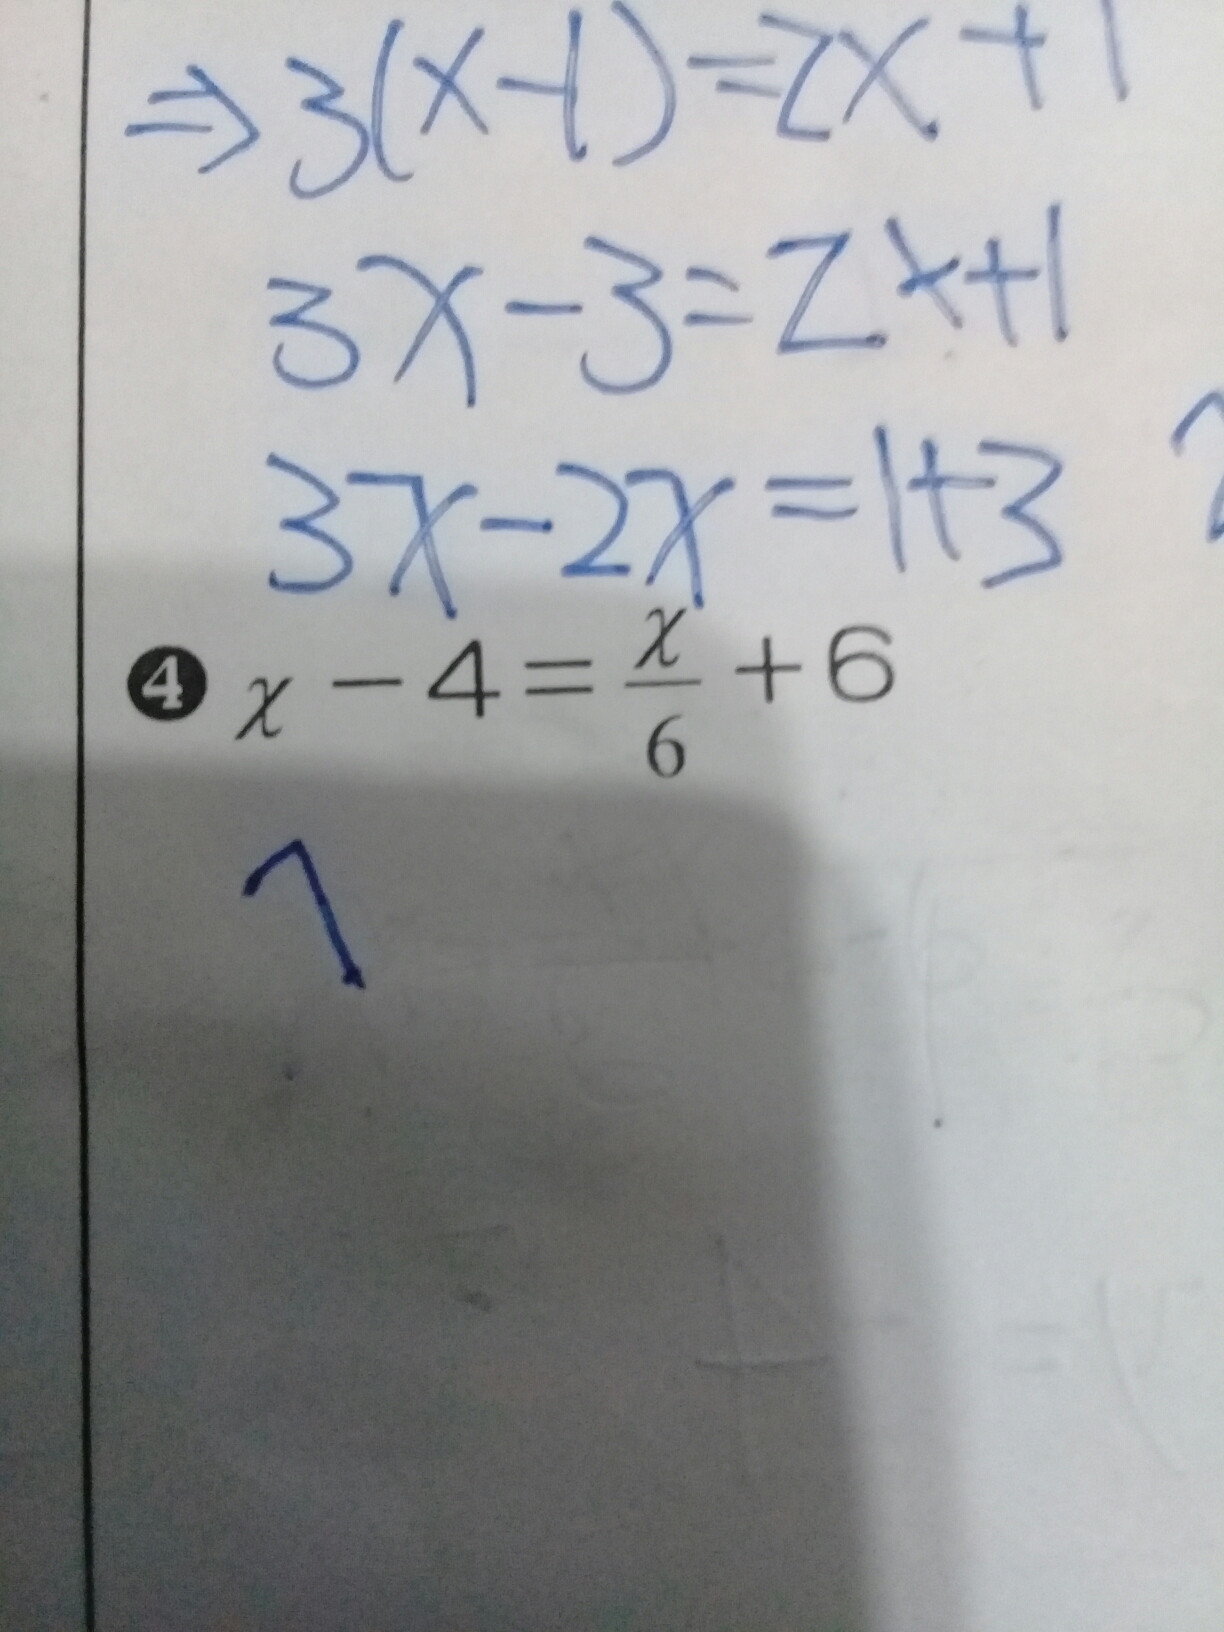 ⇒3(x-1)=2x+1
3x-3=2x+1
3x-2x=1+3
❹ x-4=x/6+6